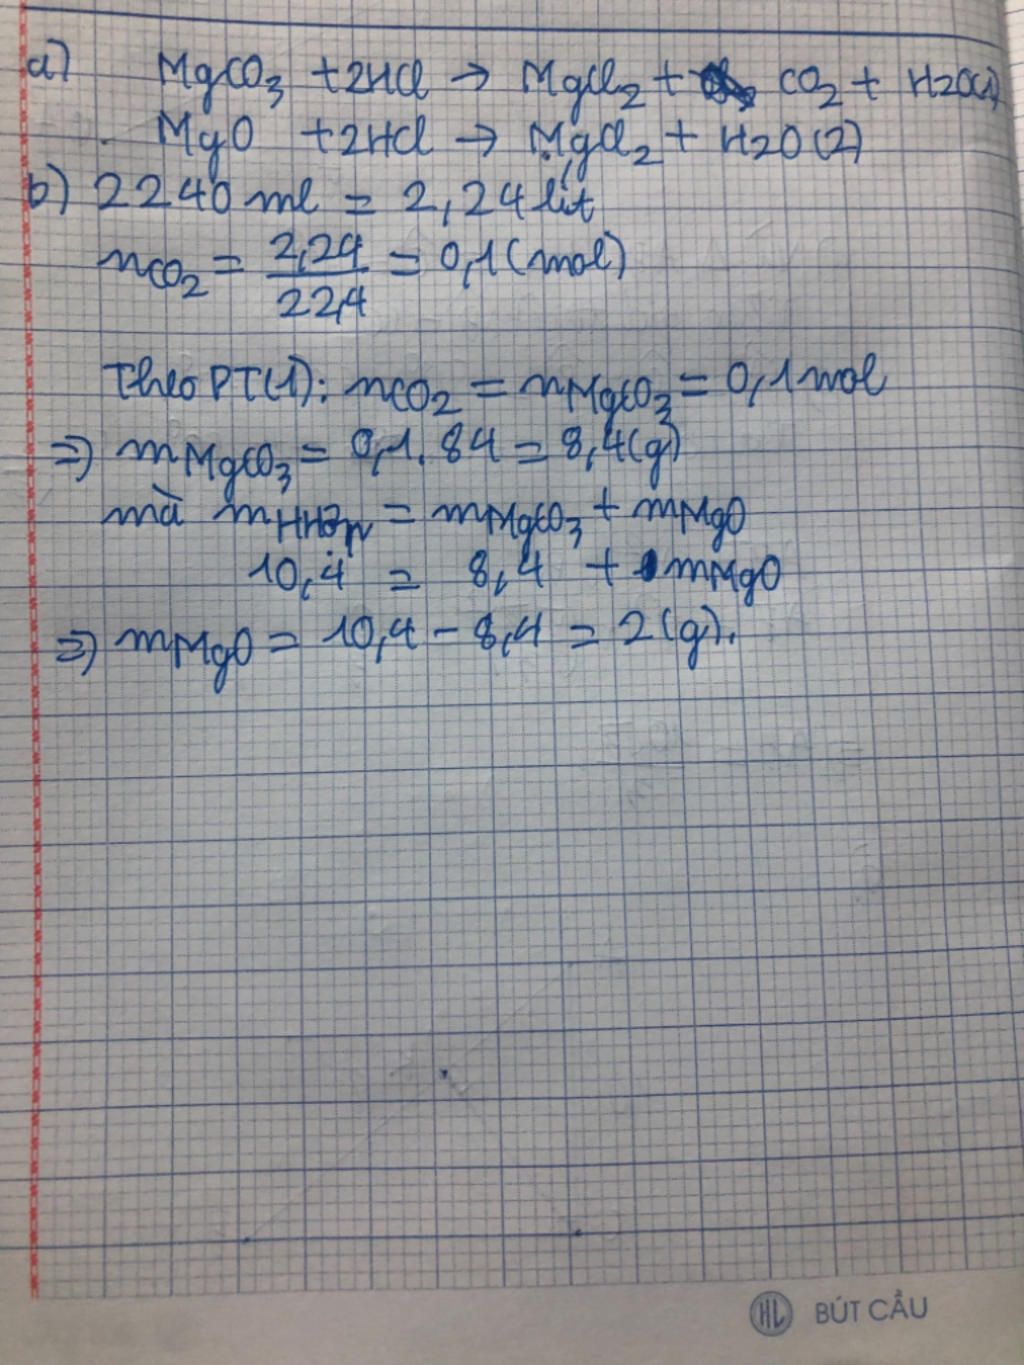 a) MgCO3 + 2HCl → MgCl2 + CO2 + H2O(1)
MgO + 2HCl → MgCl2 + H2O (2)
b) 2240 ml = 2,24 lít
nCO2 = 2,24 / 22,4 = 0,1 (mol)
Theo PT(1): nCO2 = nMgCO3 = 0,1 mol
=) mMgCO3 = 0,1. 84 = 8,4(g)
mà = mMgCO3 + mMgO
10,4 = 8,4 + mMgO
=) mMgO = 10,4 - 8,4 = 2 (g).
HL BÚT CẦU